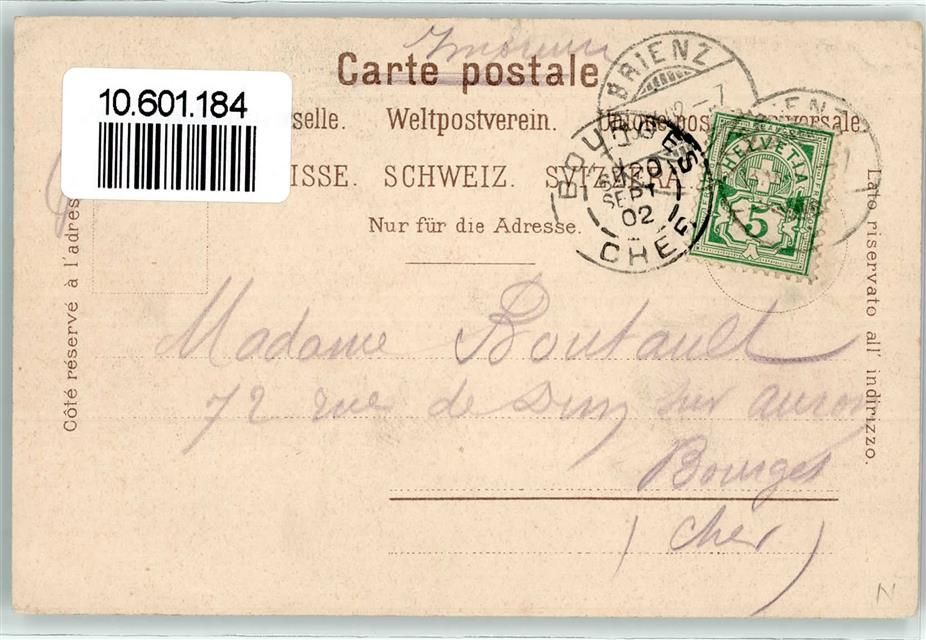 Carte postale
10.601.184
selle. Weltpostverein. Unione postale universale.
ISSE. SCHWEIZ. SVIZZERA.
Nur für die Adresse.
Côté réservé à l'adres
Lato riservato all' indirizzo.
BRIENZ
BOURGES
SEPT
02
CHER
HELVETIA
5
Madame Boutault
72 rue de Dun sur auron
Bourges
(Cher)
N